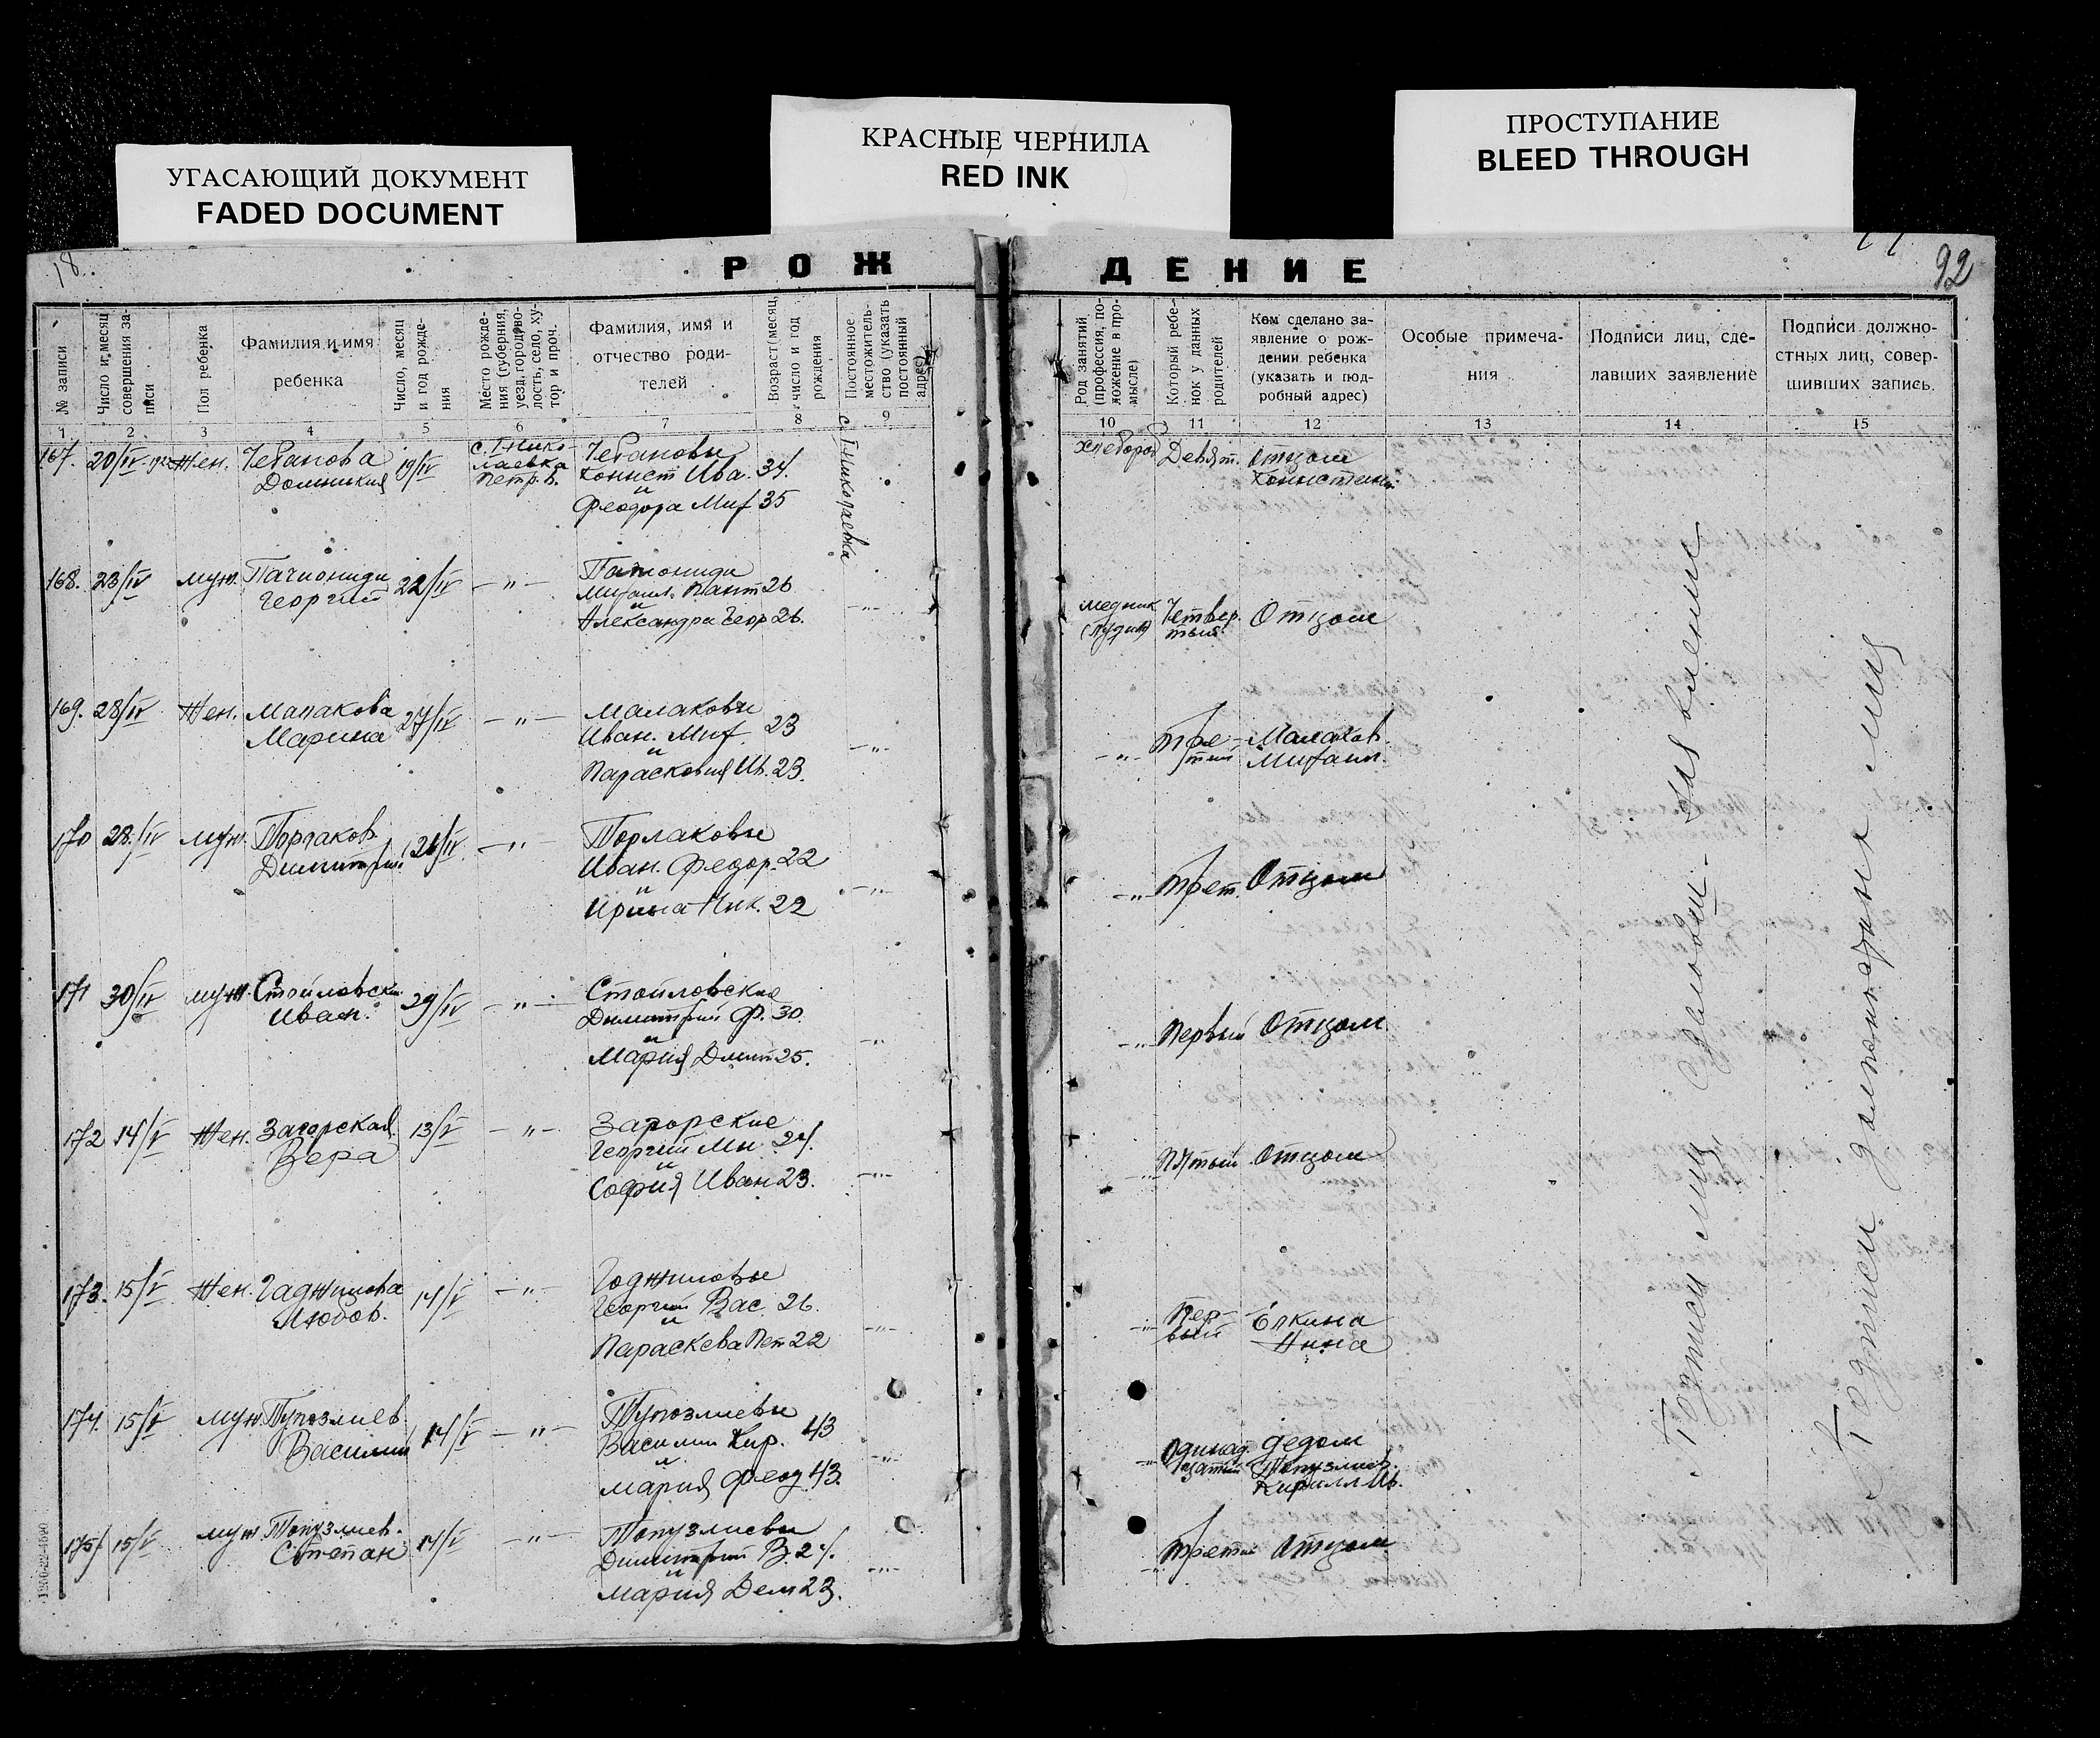 УГАСАЮЩИЙ ДОКУМЕНТ
FADED DOCUMENT
КРАСНЫЕ ЧЕРНИЛА
RED INK
ПРОСТУПАНИЕ
BLEED THROUGH
18.
РОЖ
ДЕНИЕ
92
№ записи
Число и месяц совершения записи
Пол ребенка
Фамилия и имя
ребенка
Число, месяц и год рождения
Место рождения (губерния, уезд, город, волость, село, хутор и проч.
Фамилия, имя и
отчество роди-
телей
Возраст (месяц, число и год рождения
Постоянное местожительство (указать постоянный адрес)
Род занятий (профессия, положение в промысле)
Который ребенок у данных родителей
Кем сделано за-
явление о рож-
дении ребенка
(указать и под-
робный адрес)
Особые примеча-
ния
Подписи лиц, сде-
лавших заявление
Подписи должно-
стных лиц, совер-
шивших запись.
1 2 3 4 5 6 7 8 9 10 11 12 13 14 15
167. 20/IV Жен. Чебанова 19/IV Чебановы
Домникия Конист Ива. 34.
и
Феодора Миф 35
хлебороб Девят. Отцом
168. 23/IV муж. Пачиониди 22/IV — " — Пачиониди
Георгий Михаил. Пант 26
и
Александра Геор 26. — " —
медник Четвер. Отцом
тый
169. 28/IV Жен. Малакова 27/IV — " — Малаковы
Марина Иван. Миф. 23
и
Парасковия Ив. 23. — " —
— " — Тре- Малахов.
тий Михаил.
170 28/IV муж. Порлаков 26/IV — " — Порлаковы
Димитрий Иван. Федор. 22
и
Ирина Ник. 22 — " —
— " — Трет. Отцом
171 30/IV муж. Стойловски 29/IV — " — Стойловские
Иван. Димитрий Ф. 30.
и
Мария Дмит 25. — " —
— " — Первый Отцом
172 14/V Жен. Загорская 13/V — " — Загорские
Вера Георгий Ми. 24.
и
София Иван 23. — " —
— " — Пятый Отцом
173. 15/V Жен. Гаджилова 14/V — " — Годжиловы
Любов. Георгий Вас. 26.
и
Параскева Пет 22 — " —
— " — Пер- Ёлкина
вый Нина
174. 15/V муж. Пупозлиев 14/V — " — Пупозлиевы
Василий Василии Кир. 43
и
Мария Феод 43. — " —
— " — Одинад. Дедом
цатый Топузлиев.
Кирилл Ив.
175 15/V муж Топузлиев. 14/V — " — Топузлиевы
Степан Димитрий В. 24.
и
Мария Дем 23. — " —
— " — Третий Отцом
с. Г-Николаевка
Подписи лиц, сделовш. заявление
Подписи должностных лиц